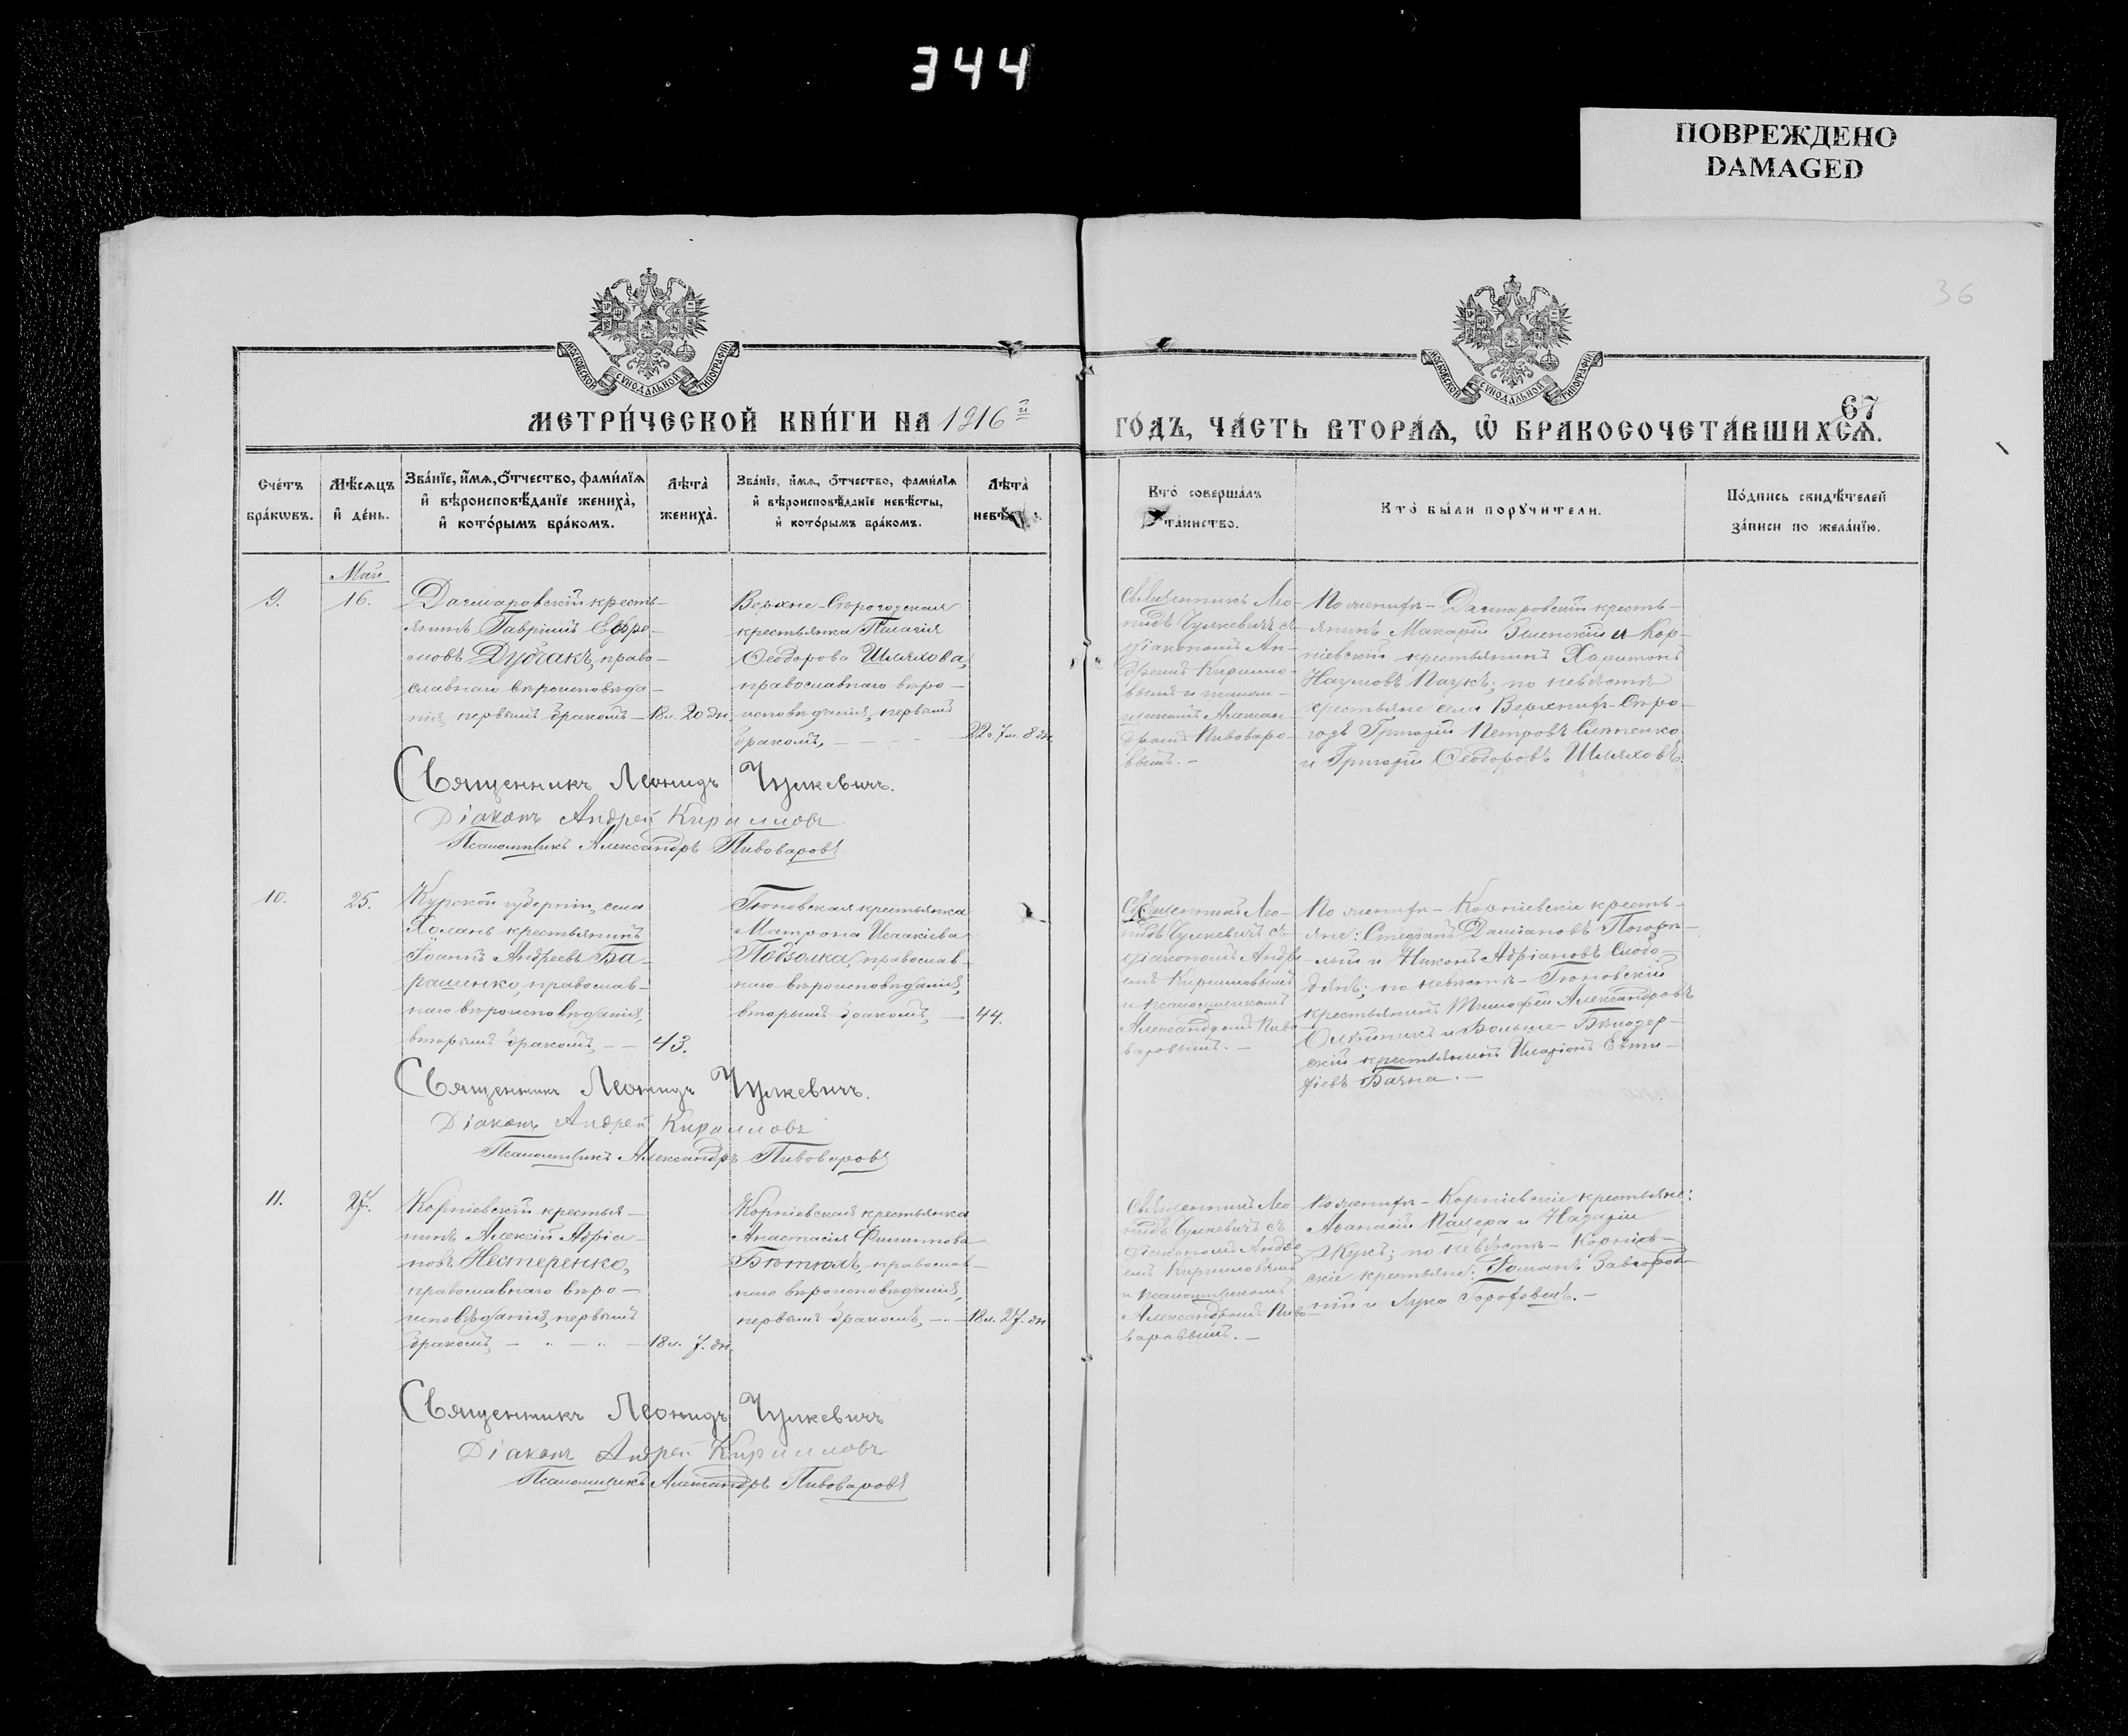 344
ПОВРЕЖДЕНО
DAMAGED
36
МОСКОВСКОЙ СѴНОДАЛЬНОЙ ТИПОГРАФІИ
МОСКОВСКОЙ СѴНОДАЛЬНОЙ ТИПОГРАФІИ
67
МЕТРИ́ЧЕСКОЙ КНИ́ГИ НА 1916й
ГО́ДЪ, ЧА́СТЬ ВТОРА́Ѧ, Ѡ҆ БРАКОСОЧЕТА́ВШИХСѦ.
Сче́тъ бра́кѡвъ.
Мѣ́сяцъ и҆ де́нь.
Зва́нїе, и҆́мѧ, ѻ҆́тчество, фами́лїѧ и҆ вѣроисповѣ́данїе жениха̀, и҆ кото́рымъ бра́комъ.
Лѣта̀ жениха̀.
Зва́нїе, и҆́мѧ, ѻ҆́тчество, фами́лїѧ и҆ вѣроисповѣ́данїе невѣ́сты, и҆ кото́рымъ бра́комъ.
Лѣта̀
Кто̀ соверша́лъ та́инство.
Кто̀ бы́ли порꙋчи́тели.
По́дпись свидѣ́телей за́писи по жела́нїю.
Май
9.
16.
Дагмаровскій кресть-
янинъ Гавріилъ Ефре-
мовъ Дубчакъ, право-
славнаго вѣроисповѣда-
нія, первымъ бракомъ
18 л. 20 дн.
Верхне-Сѣрогозская
крестьянка Пелагія
Ѳеодорова Шляхова,
православнаго вѣро-
исповѣданія, первымъ
бракомъ,
22 л. 7 м. 8 дн.
Священникъ Лео-
нидъ Чулкевичъ съ
діакономъ Ан-
дреемъ Кирилло-
вымъ и псалом-
щикомъ Алексан-
дромъ Пивоваро-
вымъ. –
По женихѣ – Дагмаровскій кресть-
янинъ Макарій Зеленскій и Кор-
ніевскій крестьянинъ Харитонъ
Наумовъ Паукъ; по невѣстѣ
крестьяне села Верхнихъ-Сѣро-
гозъ Григорій Петровъ
и Григорій Ѳеодоровъ Шляховъ.
Священникъ Леонидъ Чулкевичъ.
Діаконъ Андрей Кирилловъ
Псаломщикъ Александръ Пивоваровъ
10.
25.
Курской губерніи, села
Холань крестьянинъ
Іоаннъ Андреевъ Ба-
рашенко, православ-
наго вѣроисповѣданія,
вторымъ бракомъ,
43.
Тюповская крестьянка
Матрона Исаакіева
Подзолка, православ-
наго вѣроисповѣданія,
вторымъ бракомъ,
44.
Священникъ Лео-
нидъ Чулкевичъ съ
діакономъ Андре-
емъ Кирилловымъ
и псаломщикомъ
Александромъ Пиво-
варовымъ. –
По женихѣ – Корніевскіе кресть-
яне: Стефанъ Даміановъ
и Никонъ Адріановъ Слобо-
дянъ; по невѣстѣ – Тюповскій
крестьянинъ Тимофей Александровъ
Олѣйникъ и Больше-Бѣлозер-
скій крестьянинъ Иларіонъ Евти-
фіевъ Бачка. –
Священникъ Леонидъ Чулкевичъ.
Діаконъ Андрей Кирилловъ
Псаломщикъ Александръ Пивоваровъ
11.
27.
Корніевскій крестья-
нинъ Алексій Адріа-
новъ Нестеренко,
православнаго вѣро-
исповѣданія, первымъ
бракомъ,
18 л. 7. дн.
Корніевская крестьянка
Анастасія Филиппова
православ-
наго вѣроисповѣданія,
первымъ бракомъ,
18 л. 27. дн
Священникъ Лео-
нидъ Чулкевичъ съ
діакономъ Андре-
емъ Кирилловымъ
и псаломщикомъ
Александромъ Пиво-
варовымъ. –
По женихѣ – Корніевскіе крестьяне:
Аѳанасій Пацера и Назарій
Жукъ; по невѣстѣ – Корніев-
скіе крестьяне: Романъ Завгород-
ній и Лука Городовецъ. –
Священникъ Леонидъ Чулкевичъ
Діаконъ Андрей Кирилловъ
Псаломщикъ Александръ Пивоваровъ